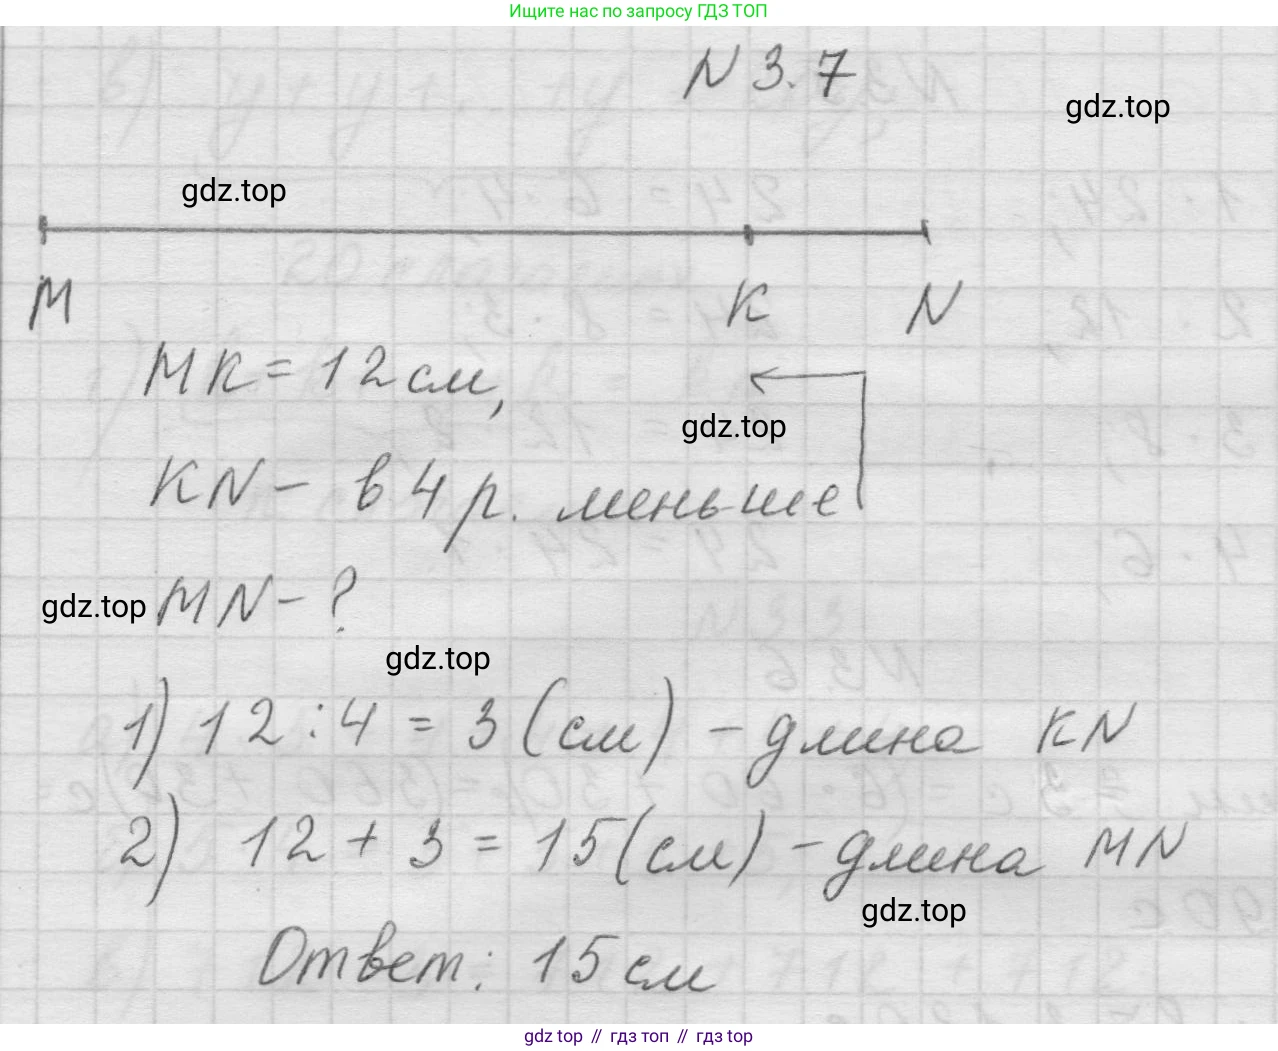 Ищите нас по запросу ГДЗ ТОП
N 3.7
gdz.top
gdz.top
M K N
MK = 12 см,
gdz.top
KN - в 4 р. меньше
gdz.top MN - ?
gdz.top
1) 12 : 4 = 3 (см) - длина KN
2) 12 + 3 = 15 (см) - длина MN
gdz.top
Ответ: 15 см
gdz top // гдз топ // гдз top